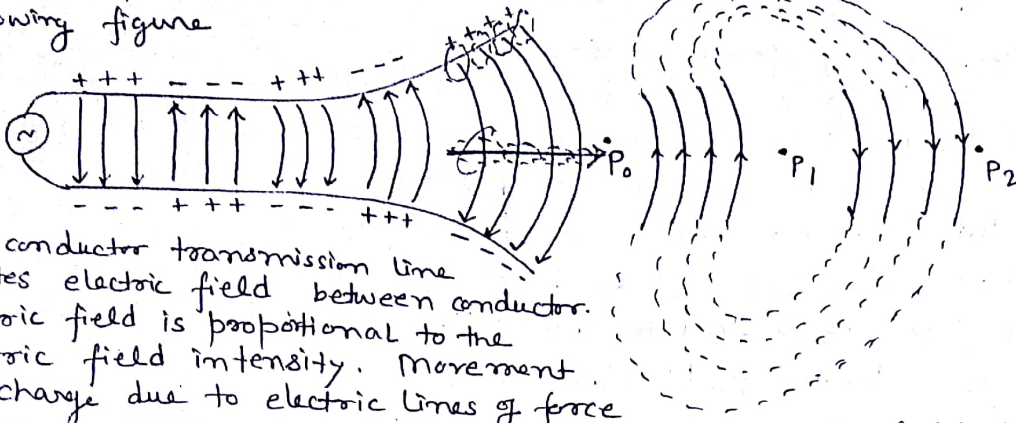 owing figure
+ + + - - - + ++ - - - + + + + +
~
P0
P1
P2
- - - + + + - - - +++ - - - -
conductor transmission line
tes electric field between conductor.
ric field is proportional to the
ric field intensity. Movement
charge due to electric lines of force